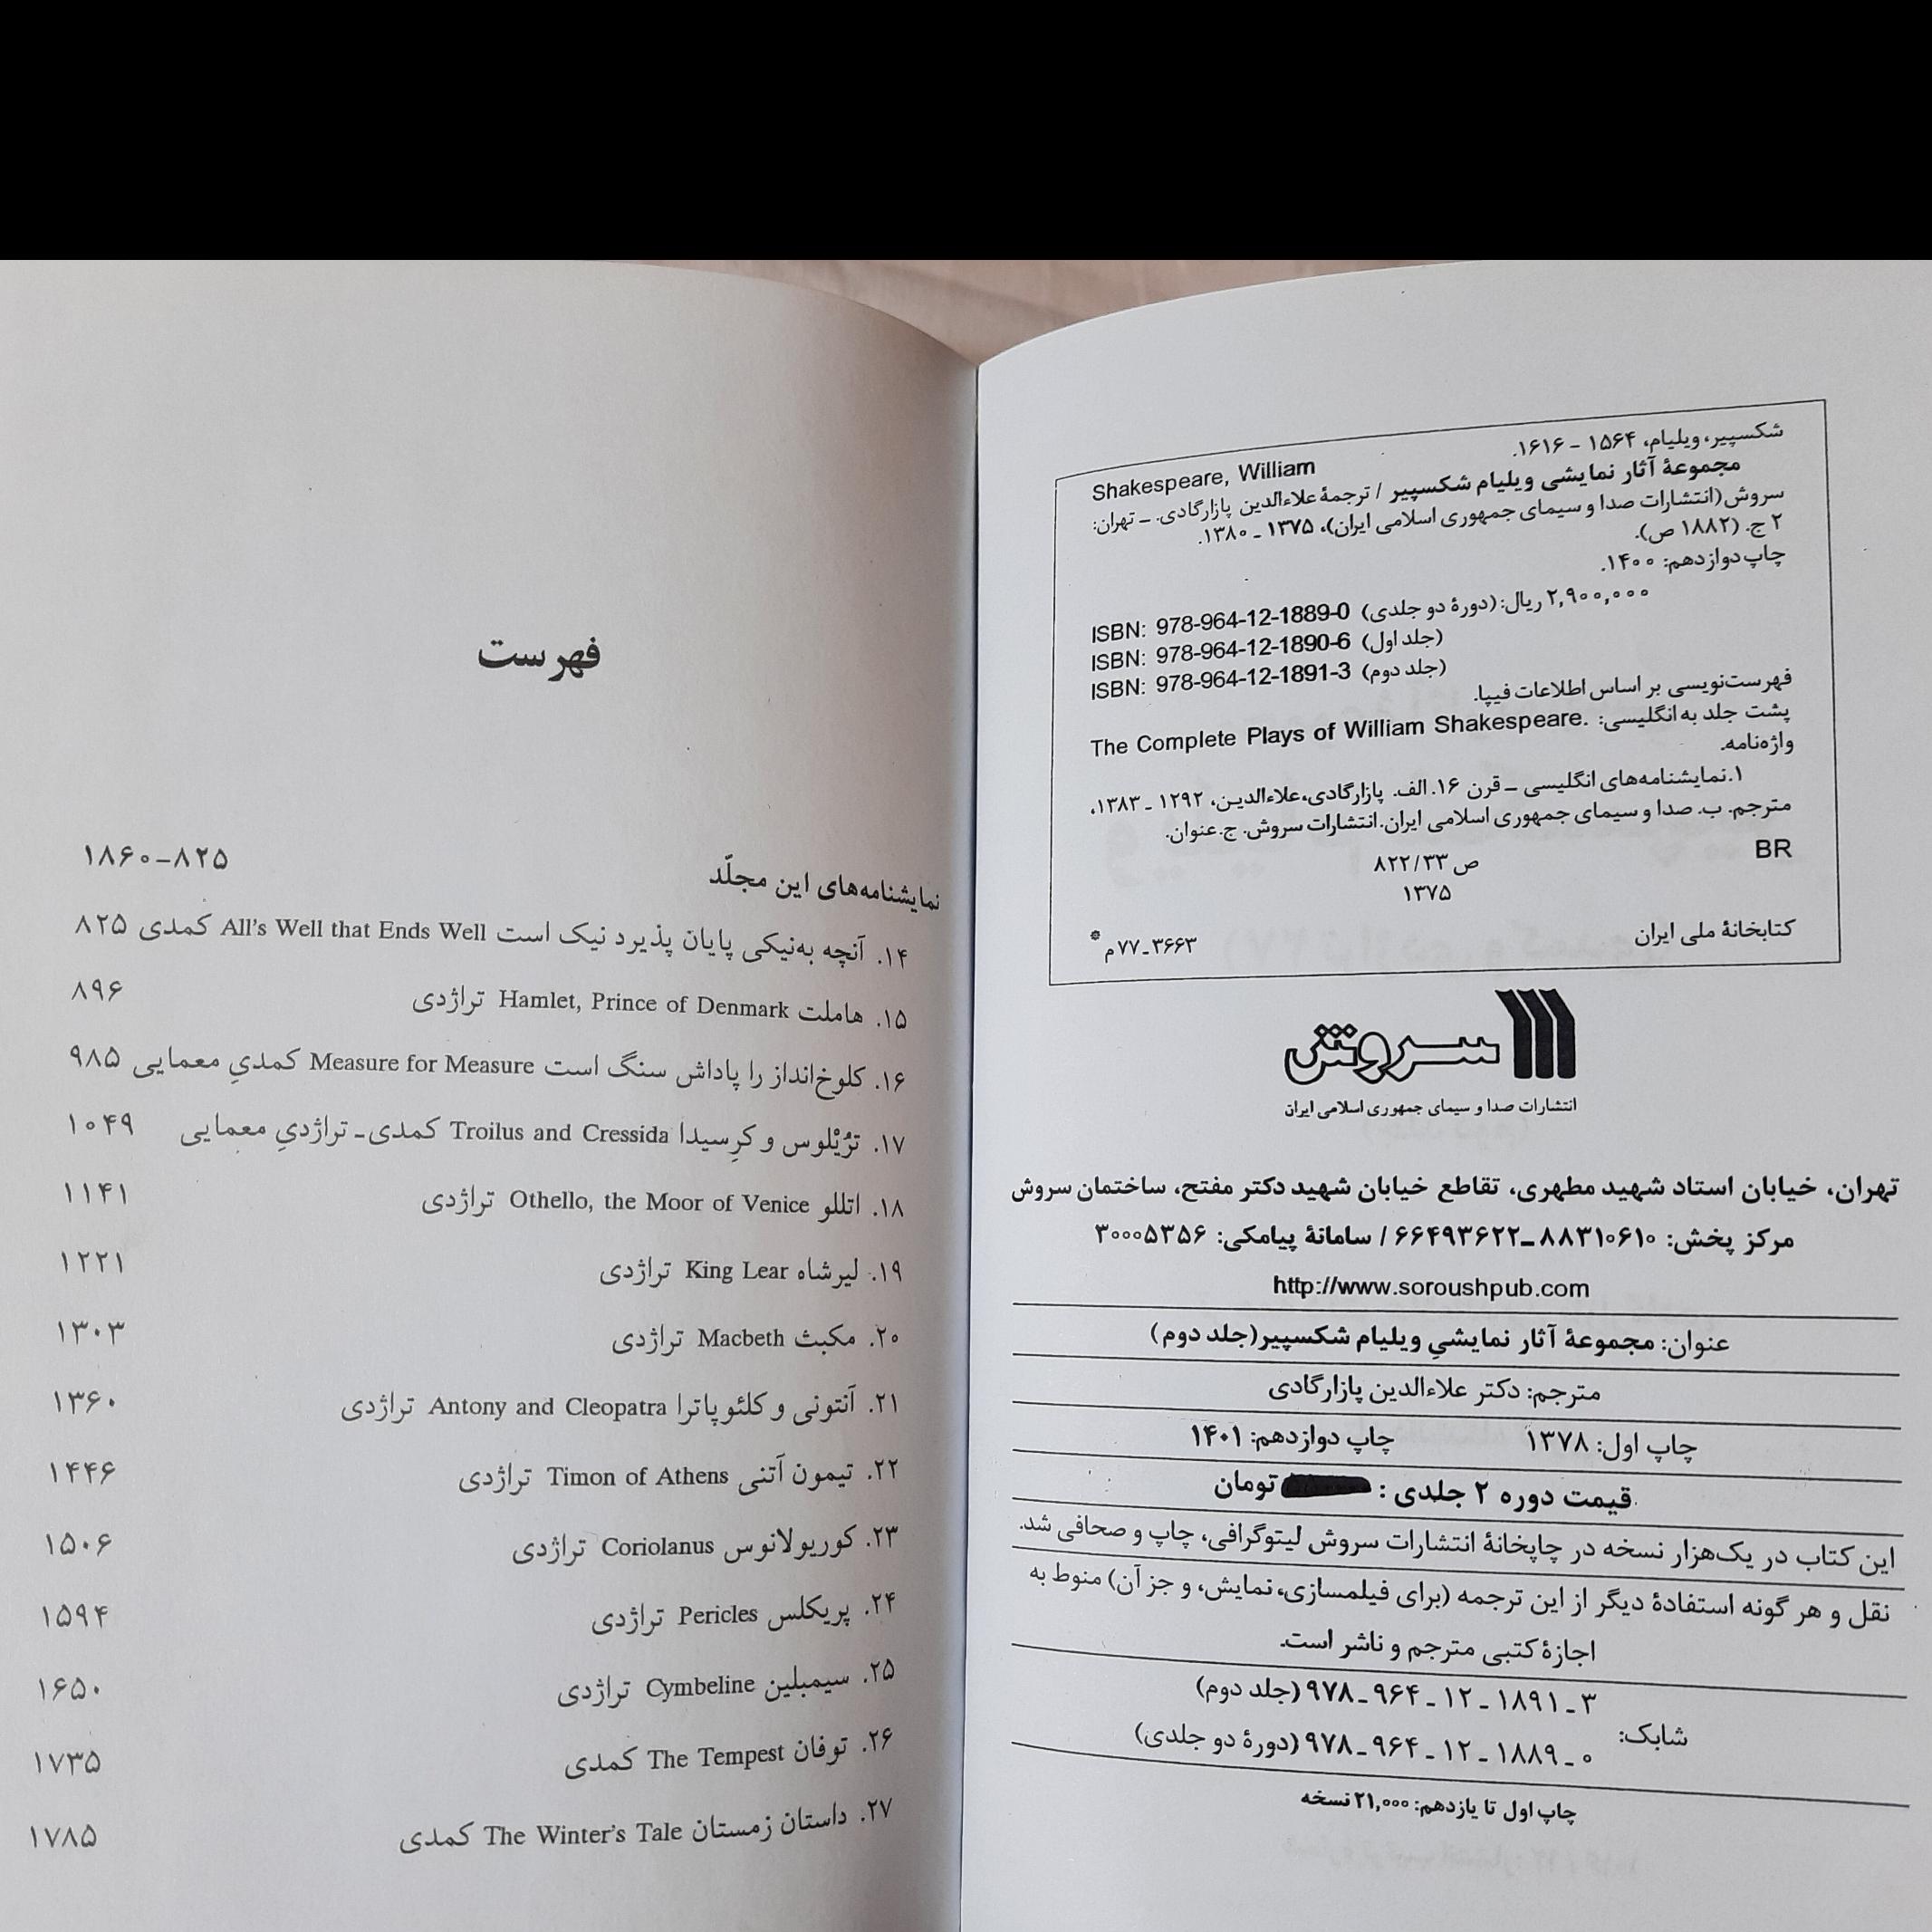 شکسپیر، ویلیام، ۱۵۶۴ - ۱۶۱۶.
Shakespeare, William
مجموعهٔ آثار نمایشی ویلیام شکسپیر / ترجمهٔ علاءالدین پازارگادی. ـ تهران:
سروش (انتشارات صدا و سیمای جمهوری اسلامی ایران)، ۱۳۷۵ ـ ۱۳۸۰.
۲ ج. (۱۸۸۲ ص).
چاپ دوازدهم: ۱۴۰۰.
۲,۹۰۰,۰۰۰ ریال: (دورهٔ دو جلدی) ISBN: 978-964-12-1889-0
(جلد اول) ISBN: 978-964-12-1890-6
(جلد دوم) ISBN: 978-964-12-1891-3
فهرست‌نویسی بر اساس اطلاعات فیپا.
پشت جلد به انگلیسی: The Complete Plays of William Shakespeare.
واژه‌نامه.
۱.نمایشنامه‌های انگلیسی ـ قرن ۱۶. الف. پازارگادی، علاءالدین، ۱۲۹۲ ـ ۱۳۸۳،
مترجم. ب. صدا و سیمای جمهوری اسلامی ایران. انتشارات سروش. ج. عنوان.
BR ص ۸۲۲/۳۳
۱۳۷۵
کتابخانهٔ ملی ایران ۳۶۶۳ـ۷۷م *
سروش
انتشارات صدا و سیمای جمهوری اسلامی ایران
تهران، خیابان استاد شهید مطهری، تقاطع خیابان شهید دکتر مفتح، ساختمان سروش
مرکز پخش: ۸۸۳۱۰۶۱۰ـ۶۶۴۹۳۶۲۲ / سامانهٔ پیامکی: ۳۰۰۰۵۳۵۶
http://www.soroushpub.com
عنوان: مجموعهٔ آثار نمایشیِ ویلیام شکسپیر(جلد دوم)
مترجم: دکتر علاءالدین پازارگادی
چاپ اول: ۱۳۷۸ چاپ دوازدهم: ۱۴۰۱
قیمت دوره ۲ جلدی : تومان
این کتاب در یک‌هزار نسخه در چاپخانهٔ انتشارات سروش لیتوگرافی، چاپ و صحافی شد.
نقل و هر گونه استفادهٔ دیگر از این ترجمه (برای فیلمسازی، نمایش، و جز آن) منوط به
اجازهٔ کتبی مترجم و ناشر است.
شابک: ۳ ـ ۱۸۹۱ ـ ۱۲ ـ ۹۶۴ ـ ۹۷۸ (جلد دوم)
۰ ـ ۱۸۸۹ ـ ۱۲ ـ ۹۶۴ ـ ۹۷۸ (دورهٔ دو جلدی)
چاپ اول تا یازدهم: ۲۱,۰۰۰ نسخه
فهرست
نمایشنامه‌های این مجلّد ۸۲۵-۱۸۶۰
۱۴. آنچه به‌نیکی پایان پذیرد نیک است All's Well that Ends Well کمدی ۸۲۵
۱۵. هاملت Hamlet, Prince of Denmark تراژدی ۸۹۶
۱۶. کلوخ‌انداز را پاداش سنگ است Measure for Measure کمدیِ معمایی ۹۸۵
۱۷. ترُیْلوس و کرِسیدا Troilus and Cressida کمدی ـ تراژدیِ معمایی ۱۰۴۹
۱۸. اتللو Othello, the Moor of Venice تراژدی ۱۱۴۱
۱۹. لیرشاه King Lear تراژدی ۱۲۲۱
۲۰. مکبث Macbeth تراژدی ۱۳۰۳
۲۱. آنتونی و کلئوپاترا Antony and Cleopatra تراژدی ۱۳۶۰
۲۲. تیمون آتنی Timon of Athens تراژدی ۱۴۴۶
۲۳. کوریولانوس Coriolanus تراژدی ۱۵۰۶
۲۴. پریکلس Pericles تراژدی ۱۵۹۴
۲۵. سیمبلین Cymbeline تراژدی ۱۶۵۰
۲۶. توفان The Tempest کمدی ۱۷۳۵
۲۷. داستان زمستان The Winter's Tale کمدی ۱۷۸۵